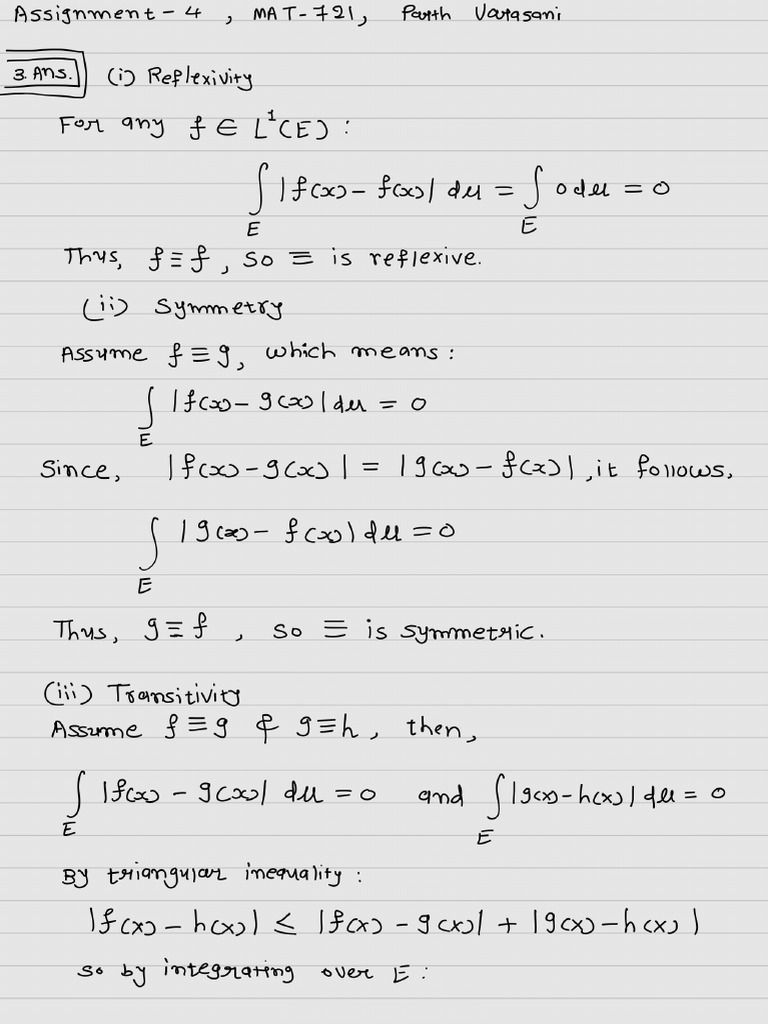 Assignment - 4 , MAT-721, Parth Varasani
3. Ans. (i) Reflexivity
For any f ∈ L¹(E) :
∫_E |f(x) - f(x)| dμ = ∫_E 0 dμ = 0
Thus, f ≡ f , so ≡ is reflexive.
(ii) Symmetry
Assume f ≡ g, which means :
∫_E |f(x) - g(x)| dμ = 0
Since, |f(x) - g(x)| = |g(x) - f(x)|, it follows,
∫_E |g(x) - f(x)| dμ = 0
Thus, g ≡ f , so ≡ is symmetric.
(iii) Transitivity
Assume f ≡ g & g ≡ h, then,
∫_E |f(x) - g(x)| dμ = 0 and ∫_E |g(x) - h(x)| dμ = 0
By triangular inequality :
|f(x) - h(x)| ≤ |f(x) - g(x)| + |g(x) - h(x)|
so by integrating over E :